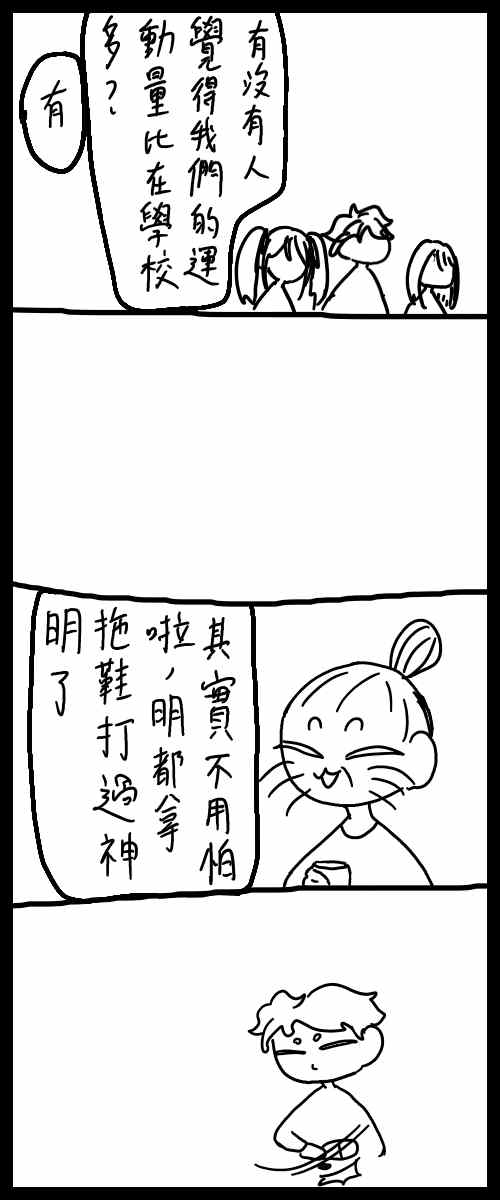 有沒有人
覺得我們的運
動量比在學校
多？
有
其實不用怕
啦，明都拿
拖鞋打過神
明了